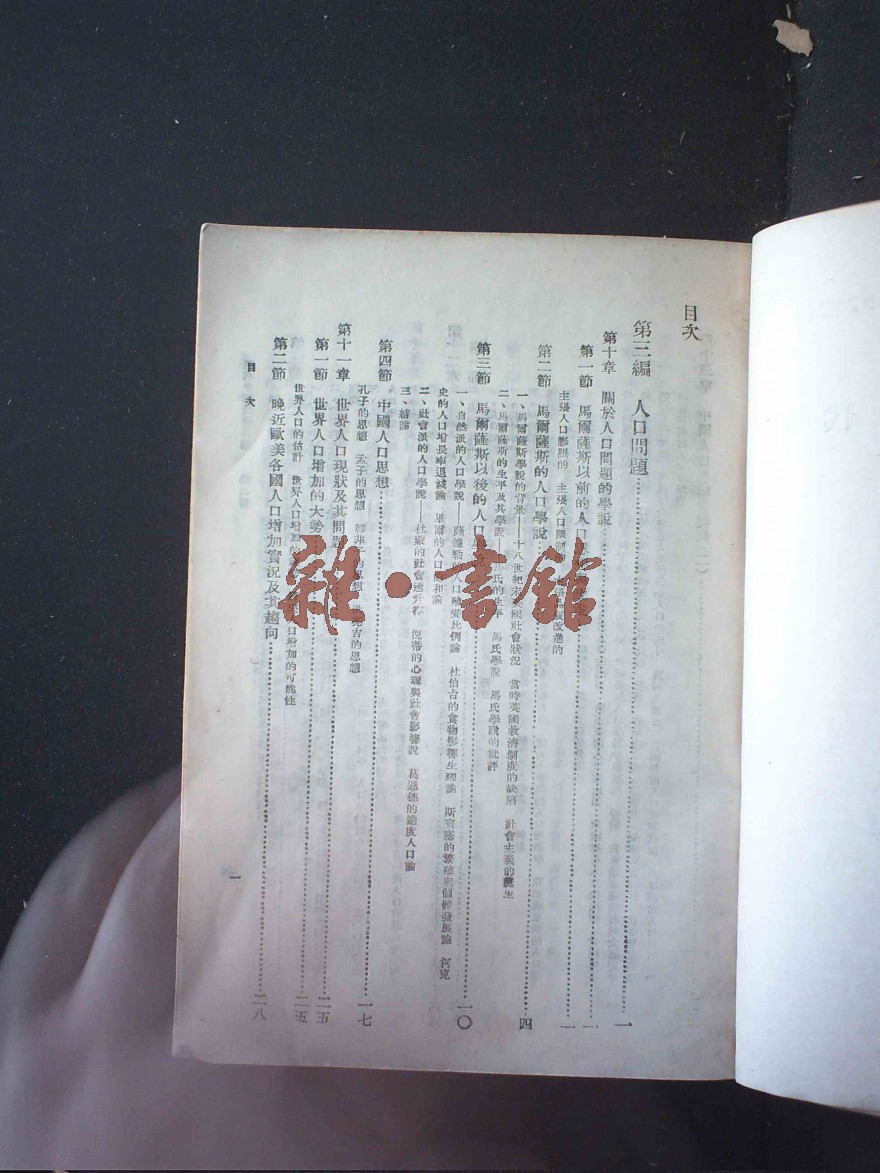 目次
第三編　人口問題……一
第十章　關於人口問題的學說……一
第一節　馬爾薩斯以前的人口……一
主張人口膨脹的　主張人口限制的　改進的
第二節　馬爾薩斯的人口學說……四
一、馬爾薩斯學說的背景——十八世紀末英國社會狀況　當時英國救濟制度的缺陷　社會主義的誕生
二、馬爾薩斯的生平及其學說——氏的生平　馬氏學說　馬氏學說的批評
第三節　馬爾薩斯以後的人口……一〇
一、自然派的人口學說——薩德勒　人口　比例論　杜伯台的食物影響生理論　斯賓塞的繁殖與個體發展論　柯克
史的人口增長率退減論　畢爾的人口　和論
二、社會派的人口學說——杜蒙的社會　升　的心理與社會影響說　葛　德的適度人口論
三、結論
第四節　中國人口思想……一七
孔子的思想　孟子的思想　韓非子的思想　吉的思想
第十一章　世界人口現狀及其問題……二五
第一節　世界人口增加的大勢……二五
世界人口的估計　世界人口增加的　口增加的可能性
第二節　晚近歐美各國人口增加實況及其趨向……二八
目次
一
雜·書館